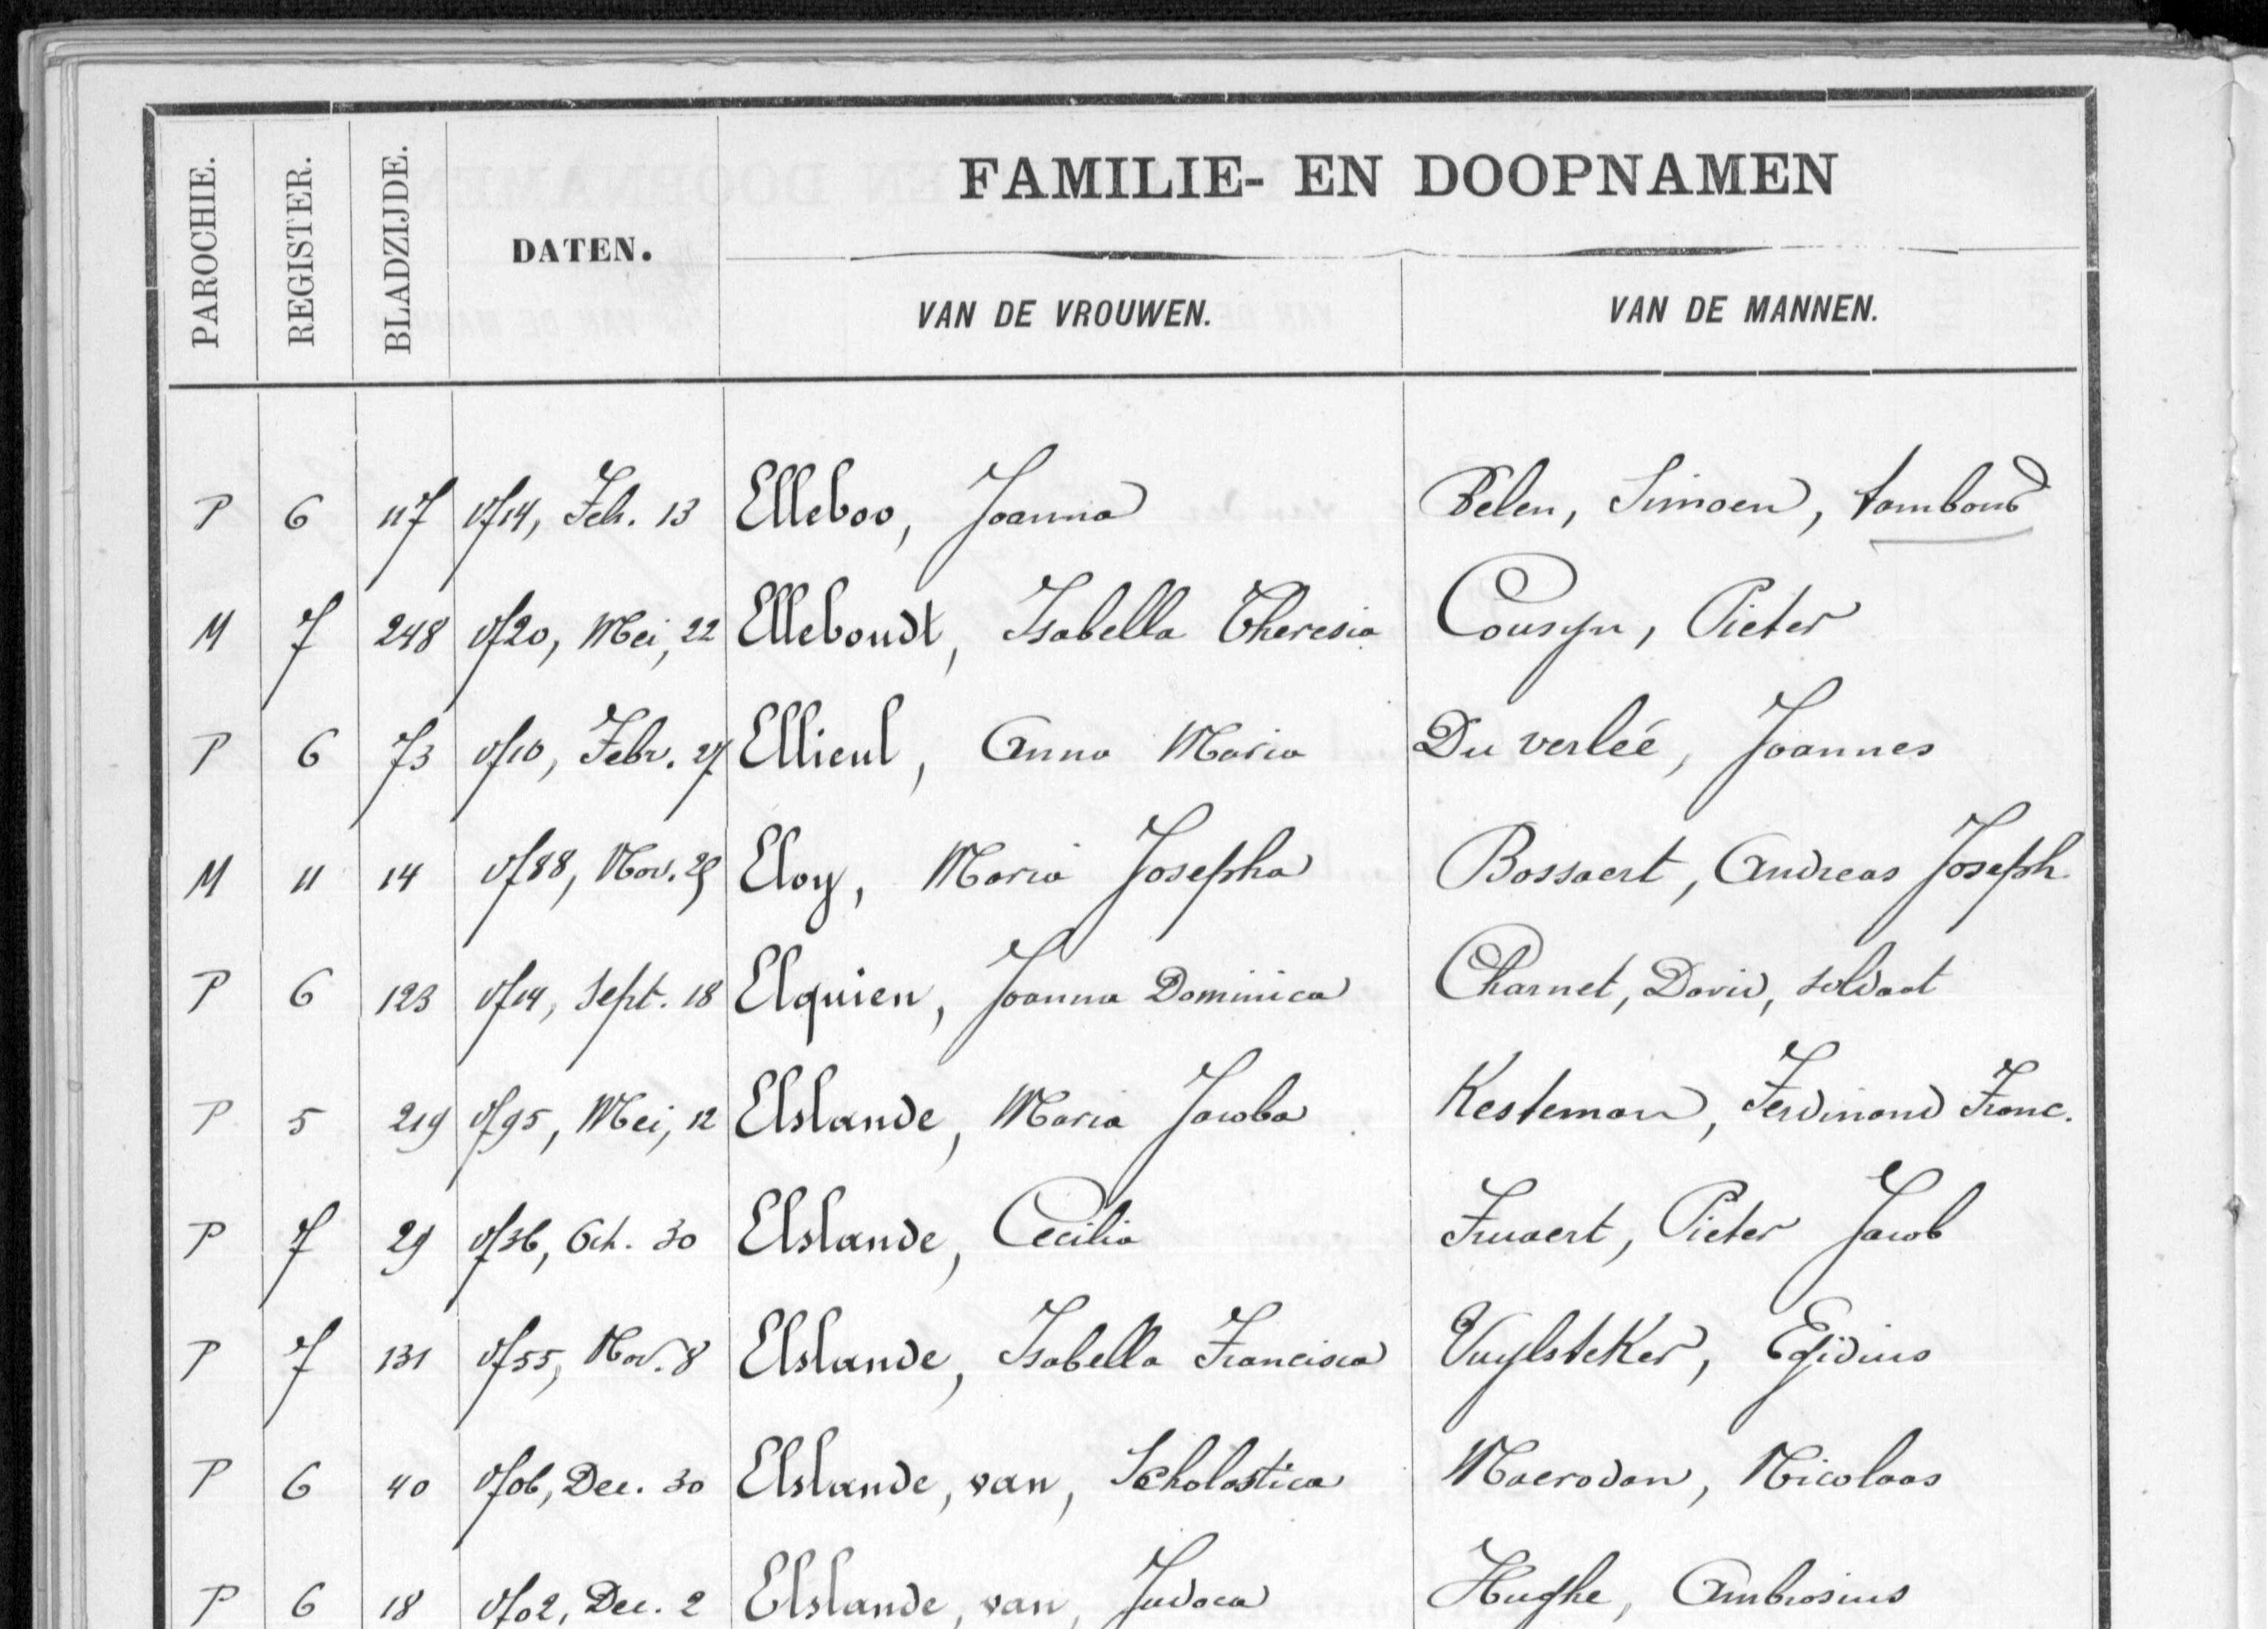 FAMILIE- EN DOOPNAMEN
PAROCHIE. REGISTER. BLADZIJDE. DATEN. VAN DE VROUWEN. VAN DE MANNEN.
P 6 117 1714, Feb. 13 Elleboo, Joanna Belen, Simoen, tambour
M 7 248 1720, Mei, 22 Elleboudt, Isabella Theresia Cousyn, Pieter
P 6 73 1710, Febr. 27 Ellieul, Anna Maria Du verleé, Joannes
M 11 14 1788, Nov. 25 Eloy, Maria Josepha Bossaert, Andreas Joseph
P 6 123 1714, Sept. 18 Elquien, Joanna Dominica Charnet, David, soldaat
P 5 219 1795, Mei, 12 Elslande, Maria Jacoba Kesteman, Ferdinand Franc.
P 7 29 1736, Oct. 30 Elslande, Cecilia Fruaert, Pieter Jacob
P 7 131 1755, Nov. 8 Elslande, Isabella Francisca Vuylsteker, Egidius
P 6 40 1706, Dec. 30 Elslande, van, Scholastica Maerodan, Nicolaas
P 6 18 1702, Dec. 2 Elslande, van, Judoca Hughe, Ambrosius